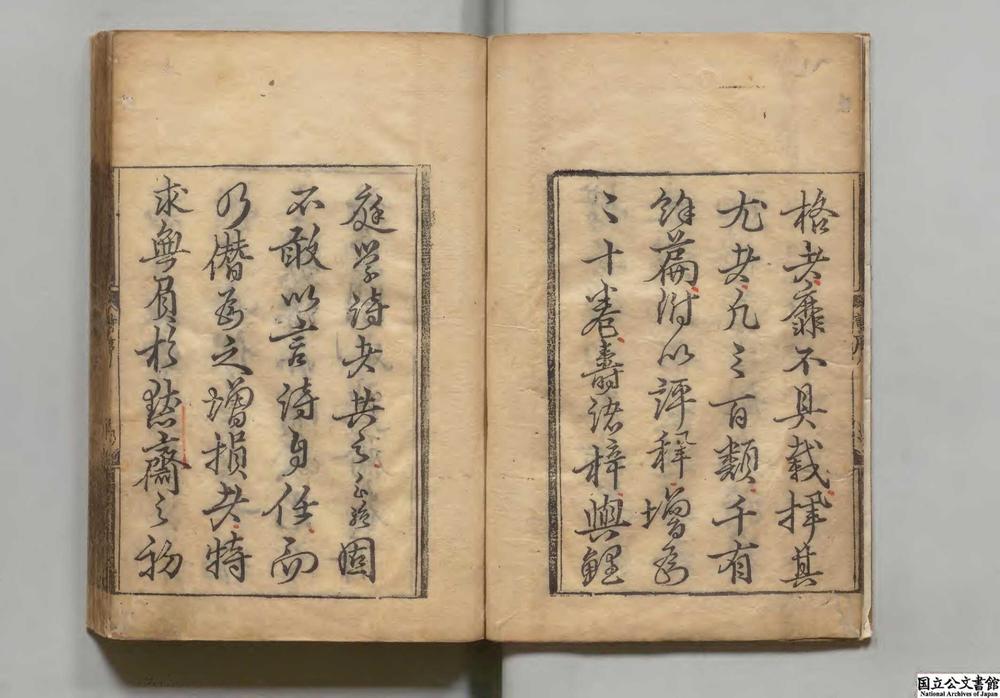 格者靡不具載擇其
尤者凡三百類千有
餘篇附以評釋增為
二十卷壽諸梓與鯉
庭学詩者共之正孫固
不敢以言詩自任而
乃僭為之增損者特
求無負於默齋之初
国立公文書館
National Archives of Japan